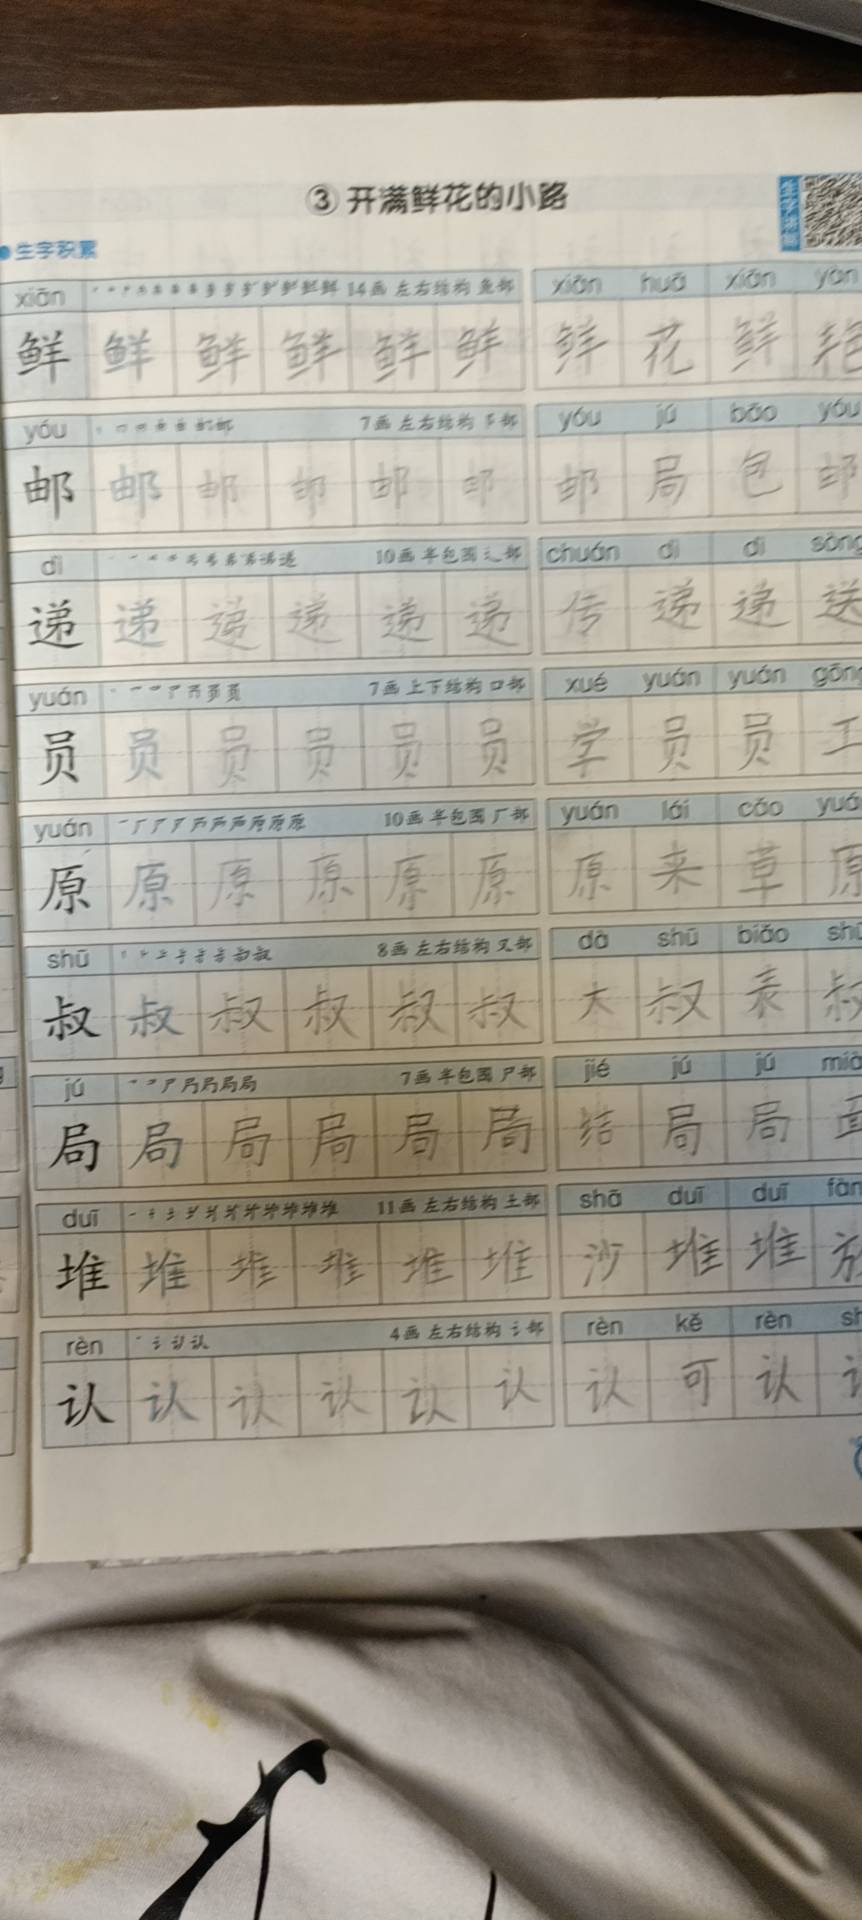 ③ 开满鲜花的小路
生字积累
xiān 14画 左右结构 鱼部 xiān huā xiān yàn
鲜 鲜 鲜 鲜 鲜 鲜 鲜 花 鲜 艳
yóu 7画 左右结构 阝部 yóu jú bāo yóu
邮 邮 邮 邮 邮 邮 邮 局 包 邮
dì 10画 半包围 辶部 chuán dì dì sòng
递 递 递 递 递 递 传 递 递 送
yuán 7画 上下结构 口部 xué yuán yuán gōng
员 员 员 员 员 员 学 员 员 工
yuán 10画 半包围 厂部 yuán lái cǎo yuá
原 原 原 原 原 原 原 来 草 原
shū 8画 左右结构 又部 dà shū biǎo shū
叔 叔 叔 叔 叔 叔 大 叔 表 叔
jú 7画 半包围 尸部 jié jú jú mià
局 局 局 局 局 局 结 局 局 面
duī 11画 左右结构 土部 shā duī duī fàn
堆 堆 堆 堆 堆 堆 沙 堆 堆 放
rèn 4画 左右结构 讠部 rèn kě rèn sh
认 认 认 认 认 认 认 可 认